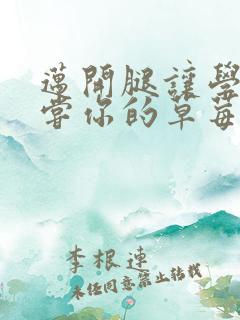 邁開腿讓學
嘗你的草莓
李根連
未经同意禁止转载